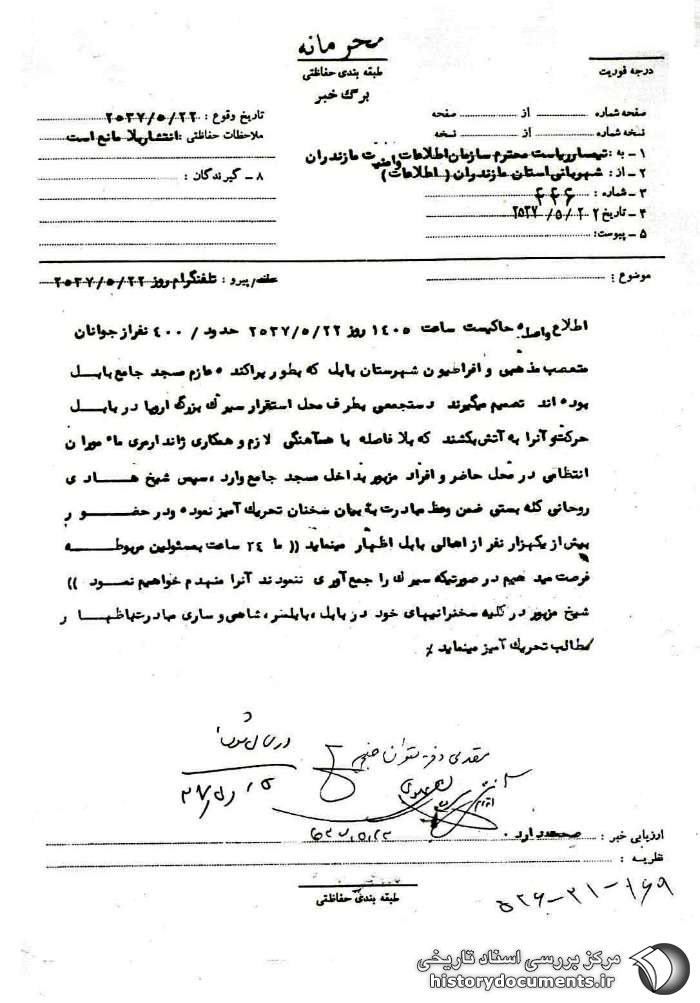 محرمانه
طبقه بندی حفاظتی
برگ خبر
درجه فوریت
صفحه شماره از صفحه
نسخه شماره از نسخه
۱ - به : تیمسار ریاست محترم سازمان اطلاعات و امنیت مازندران
۲ - از : شهربانی استان مازندران (اطلاعات)
۳ - شماره : ۴۴۶
۴ - تاریخ ۲۵۳۷/۵/۲۲
۵ - پیوست:
تاریخ وقوع : ۲۵۳۷/۵/۲۲
ملاحظات حفاظتی : انتشار بلامانع است
۸ - گیرندگان :
موضوع :
پیرو : تلفنگرام روز ۲۵۳۷/۵/۲۲
اطلاع واصله حاکیست ساعت ۱۴۰۵ روز ۲۵۳۷/۵/۲۲ حدود / ۴۰۰ نفر از جوانان
متعصب مذهبی و افراطیون شهرستان بابل که بطور پراکنده عازم مسجد جامع بابل
بوده اند تصمیم میگیرند دستجمعی بطرف محل استقرار سیرک بزرگ اروپا در بابل
حرکت و آنرا به آتش بکشند که بلا فاصله با همآهنگی لازم و همکاری ژاندارمری مامورا ن
انتظامی در محل حاضر و افراد مزبور بداخل مسجد جامع وارد ، سپس شیخ هــاد ی
روحانی کله بستی ضمن وعظ مبادرت به بیان سخنان تحریک آمیز نموده ودر حضــو ر
بیش از یکهزار نفر از اهالی بابل اظهار مینماید (( ما ۲۴ ساعت بمسئولین مربوطــه
فرصت مید هیم در صورتیکه سیرک را جمع آوری ننمودند آنرا منهدم خواهیم نمــود ))
شیخ مزبور در کلیه سخنرانیهای خود در بابل ، بابلسر ، شاهی و ساری مبادرت باظهــا ر
مطالب تحریک آمیز مینماید ٪
ارزیابی خبر : صحت دارد .
نظریه :
طبقه بندی حفاظتی
مرکز بررسی اسناد تاریخی
historydocuments.ir